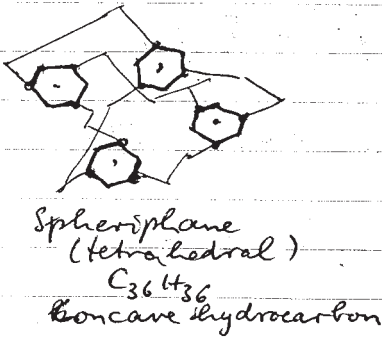 Spheriphane
(tetrahedral)
C36H36
Concave hydrocarbon